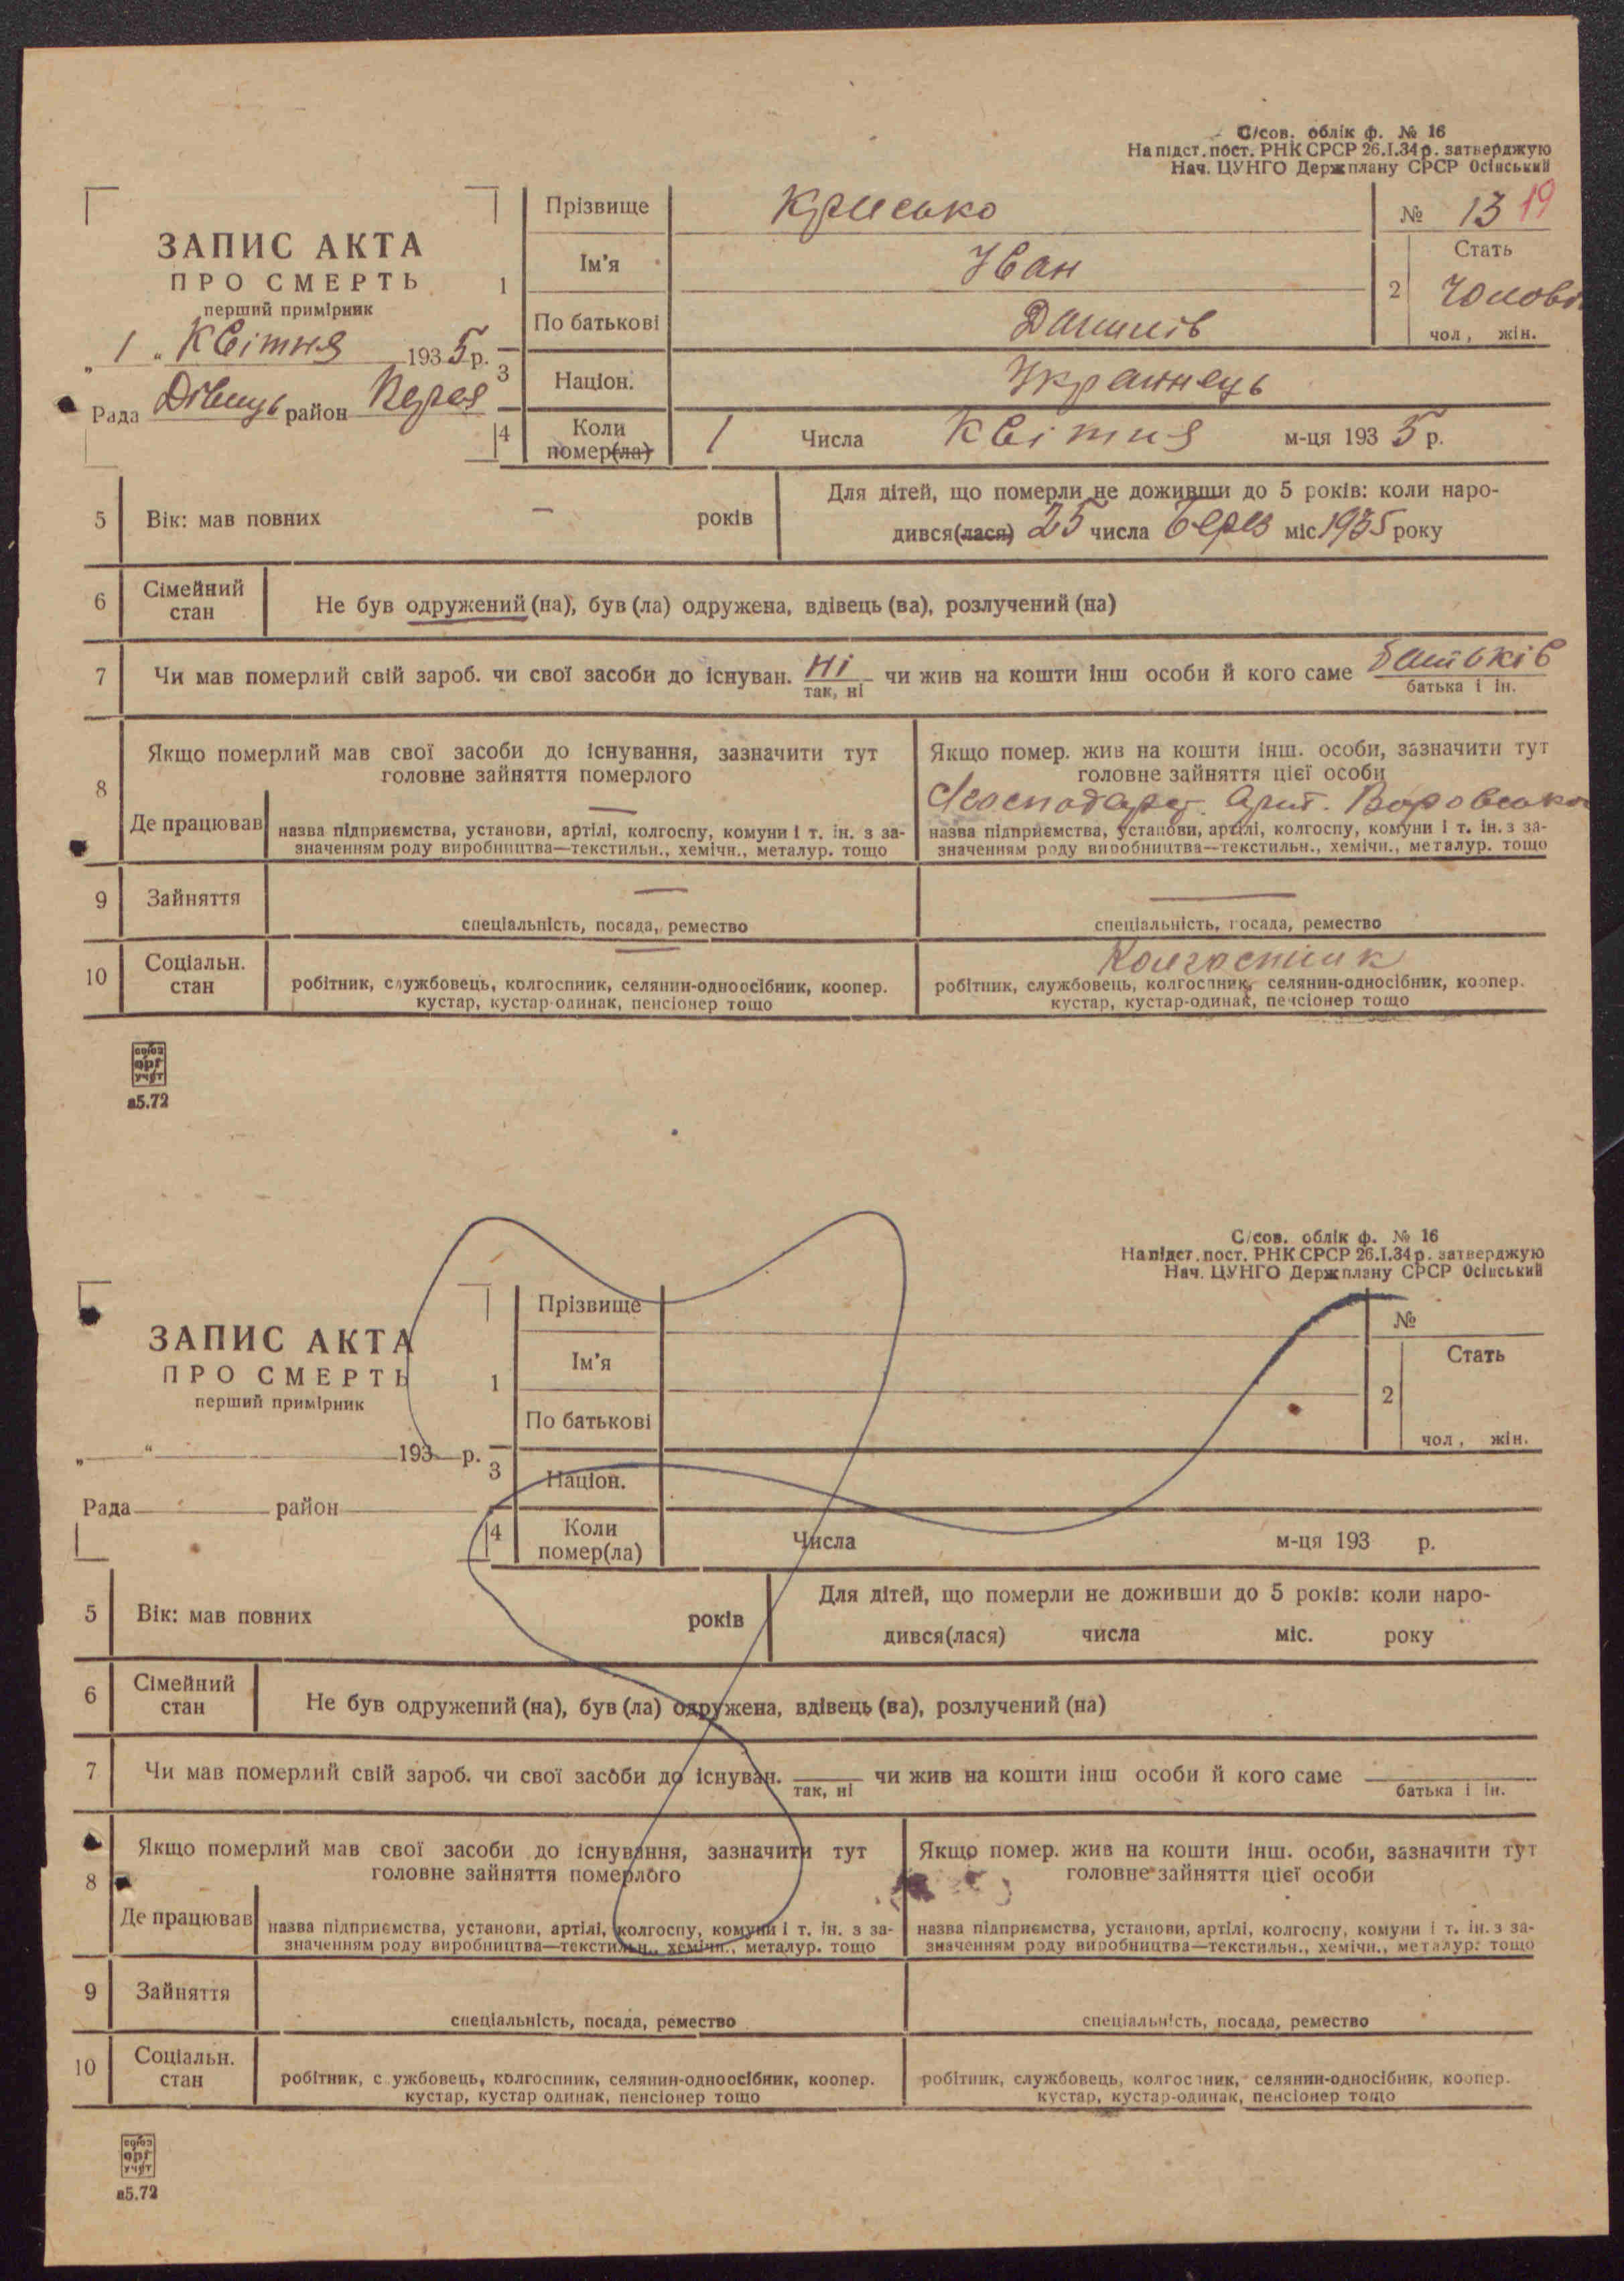 С/сов. облік ф. № 16
На підст. пост. РНК СРСР 26.I.34 р. затверджую
Нач. ЦУНГО Держплану СРСР Осінський
ЗАПИС АКТА
ПРО СМЕРТЬ
перший примірник
„ 1 " Квітня 1935 р.
Рада район
1 Прізвище Крисько
№ 13 19
Ім'я Іван
По батькові Данилів
2 Стать
чол, жін.
3 Націон. Українець
4 Коли помер(ла) 1 Числа Квітня м-ця 1935 р.
5 Вік: мав повних — років
Для дітей, що померли не доживши до 5 років: коли наро-
дився(лася) 25 числа Берез міс 1935 року
6 Сімейний стан Не був одружений (на), був (ла) одружена, вдівець (ва), розлучений (на)
7 Чи мав померлий свій зароб. чи свої засоби до існуван. Ні чи жив на кошти інш особи й кого саме Батьків
так, ні батька і ін.
8 Якщо померлий мав свої засоби до існування, зазначити тут
головне зайняття померлого
Якщо помер. жив на кошти інш. особи, зазначити тут
головне зайняття цієї особи
Де працював —
назва підприємства, установи, артілі, колгоспу, комуни і т. ін. з за-
значенням роду виробництва—текстильн., хемічн., металур. тощо
назва підприємства, установи, артілі, колгоспу, комуни і т. ін. з за-
значенням роду виробництва—текстильн., хемічн., металур. тощо
9 Зайняття — —
спеціальність, посада, ремество
спеціальність, посада, ремество
10 Соціальн. стан — Колгоспник
робітник, службовець, колгоспник, селянин-одноосібник, коопер.
кустар, кустар-одинак, пенсіонер тощо
робітник, службовець, колгоспник, селянин-односібник, коопер.
кустар, кустар-одинак, пенсіонер тощо
союз
орг
учёт
а5.72
С/сов. облік ф. № 16
На підст. пост. РНК СРСР 26.I.34 р. затверджую
Нач. ЦУНГО Держплану СРСР Осінський
ЗАПИС АКТА
ПРО СМЕРТЬ
перший примірник
„ " 193 р.
Рада район
1 Прізвище
№
Ім'я
По батькові
2 Стать
чол, жін.
3 Націон.
4 Коли помер(ла) Числа м-ця 193 р.
5 Вік: мав повних років
Для дітей, що померли не доживши до 5 років: коли наро-
дився(лася) числа міс. року
6 Сімейний стан Не був одружений (на), був (ла) одружена, вдівець (ва), розлучений (на)
7 Чи мав померлий свій зароб. чи свої засоби до існуван. чи жив на кошти інш особи й кого саме
так, ні батька і ін.
8 Якщо померлий мав свої засоби до існування, зазначити тут
головне зайняття померлого
Якщо помер. жив на кошти інш. особи, зазначити тут
головне зайняття цієї особи
Де працював
назва підприємства, установи, артілі, колгоспу, комуни і т. ін. з за-
значенням роду виробництва—текстильн., хемічн., металур. тощо
назва підприємства, установи, артілі, колгоспу, комуни і т. ін. з за-
значенням роду виробництва—текстильн., хемічн., металур. тощо
9 Зайняття
спеціальність, посада, ремество
спеціальність, посада, ремество
10 Соціальн. стан
робітник, службовець, колгоспник, селянин-одноосібник, коопер.
кустар, кустар одинак, пенсіонер тощо
робітник, службовець, колгоспник, селянин-односібник, коопер.
кустар, кустар-одинак, пенсіонер тощо
союз
орг
учёт
а5.72